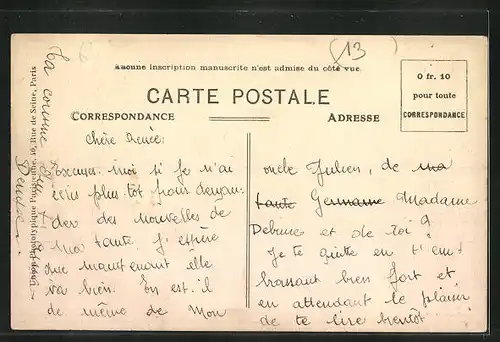 (13)
Aucune inscription manuscrite n'est admise du côté vue.
CARTE POSTALE
0 fr. 10
pour toute
CORRESPONDANCE
CORRESPONDANCE
ADRESSE
chère Renée:
Excusez-moi si je n'ai
écris plus tôt pour deman-
der des nouvelles de
ma tante. J'espère
que maintenant elle
va bien. En est-il
de même de mon
oncle Julien, de ma
tante Germaine Madame
Debrune et de toi?
Je te quitte en t'em-
brassant bien fort et
en attendant le plaisir
de te lire bientôt
La cousine
Denise
Phototypique Parisienne, 10, Rue de Seine, Paris